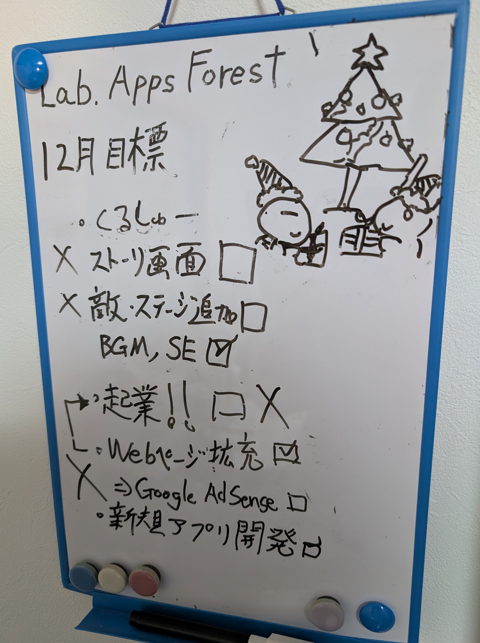 Lab. Apps Forest
12月目標
・くるしゅー
X ストーリ画面 □
X 敵・ステージ追加 □
BGM, SE ☑
・起業!! □ X
・Webページ拡充 ☑
X ⇒Google AdSense □
・新規アプリ開発 □